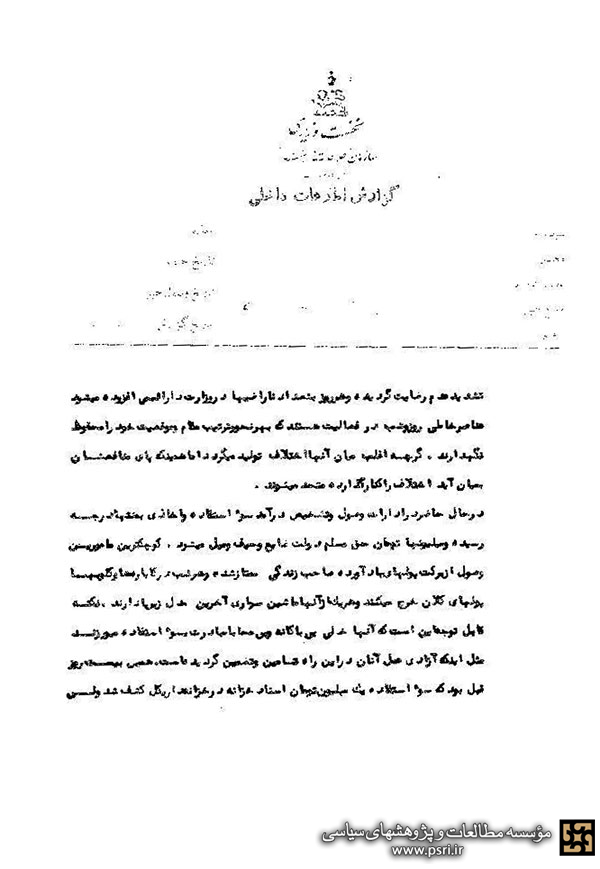 نخست وزیری
سازمان
گزارش اطلاعات داخلی
شماره
تاریخ
تاریخ وصول خبر
تاریخ گزارش
تشدید عدم رضایت گردیده و هر روز بتعداد ناراضیها در وزارت دارائی افزوده میشود
عناصر خاطی روز و شب در فعالیت هستند که بهر نحو و ترتیب مقام و موقعیت خود را محفوظ
نگهدارند ، گرچه اغلب میان آنها اختلاف تولید میگردد اما همینکه پای منافعشان
بمیان آید اختلاف را کنار گذارده متحد میشوند .
در حال حاضر در ادارات وصول و تشخیص درآمد سوء استفاده و اخاذی بمنتها درجه
رسیده و میلیونها تومان حق مسلم دولت ضایع و حیف و میل میشود . کوچکترین مامورین
وصول از برکت پولهای باد آورده صاحب زندگی ممتاز شده و هر شب در کاباره‌ها و کلوپها
پولهای کلان خرج میکنند و هریک از آنها ماشین سواری آخرین مدل زیر پا دارند ، نکته
قابل توجه این است که آنها خیلی بی باکانه و بی محابا مبادرت بسوء استفاده میورزند
مثل اینکه آزادی عمل آنان در این راه تضامین و تضمین گردیده است، همین بیست روز
قبل بود که سوء استفاده یک میلیون تومان اسناد خزانه در خزانه‌داری کل کشف شد ولی
مؤسسه مطالعات و پژوهشهای سیاسی
www.psri.ir